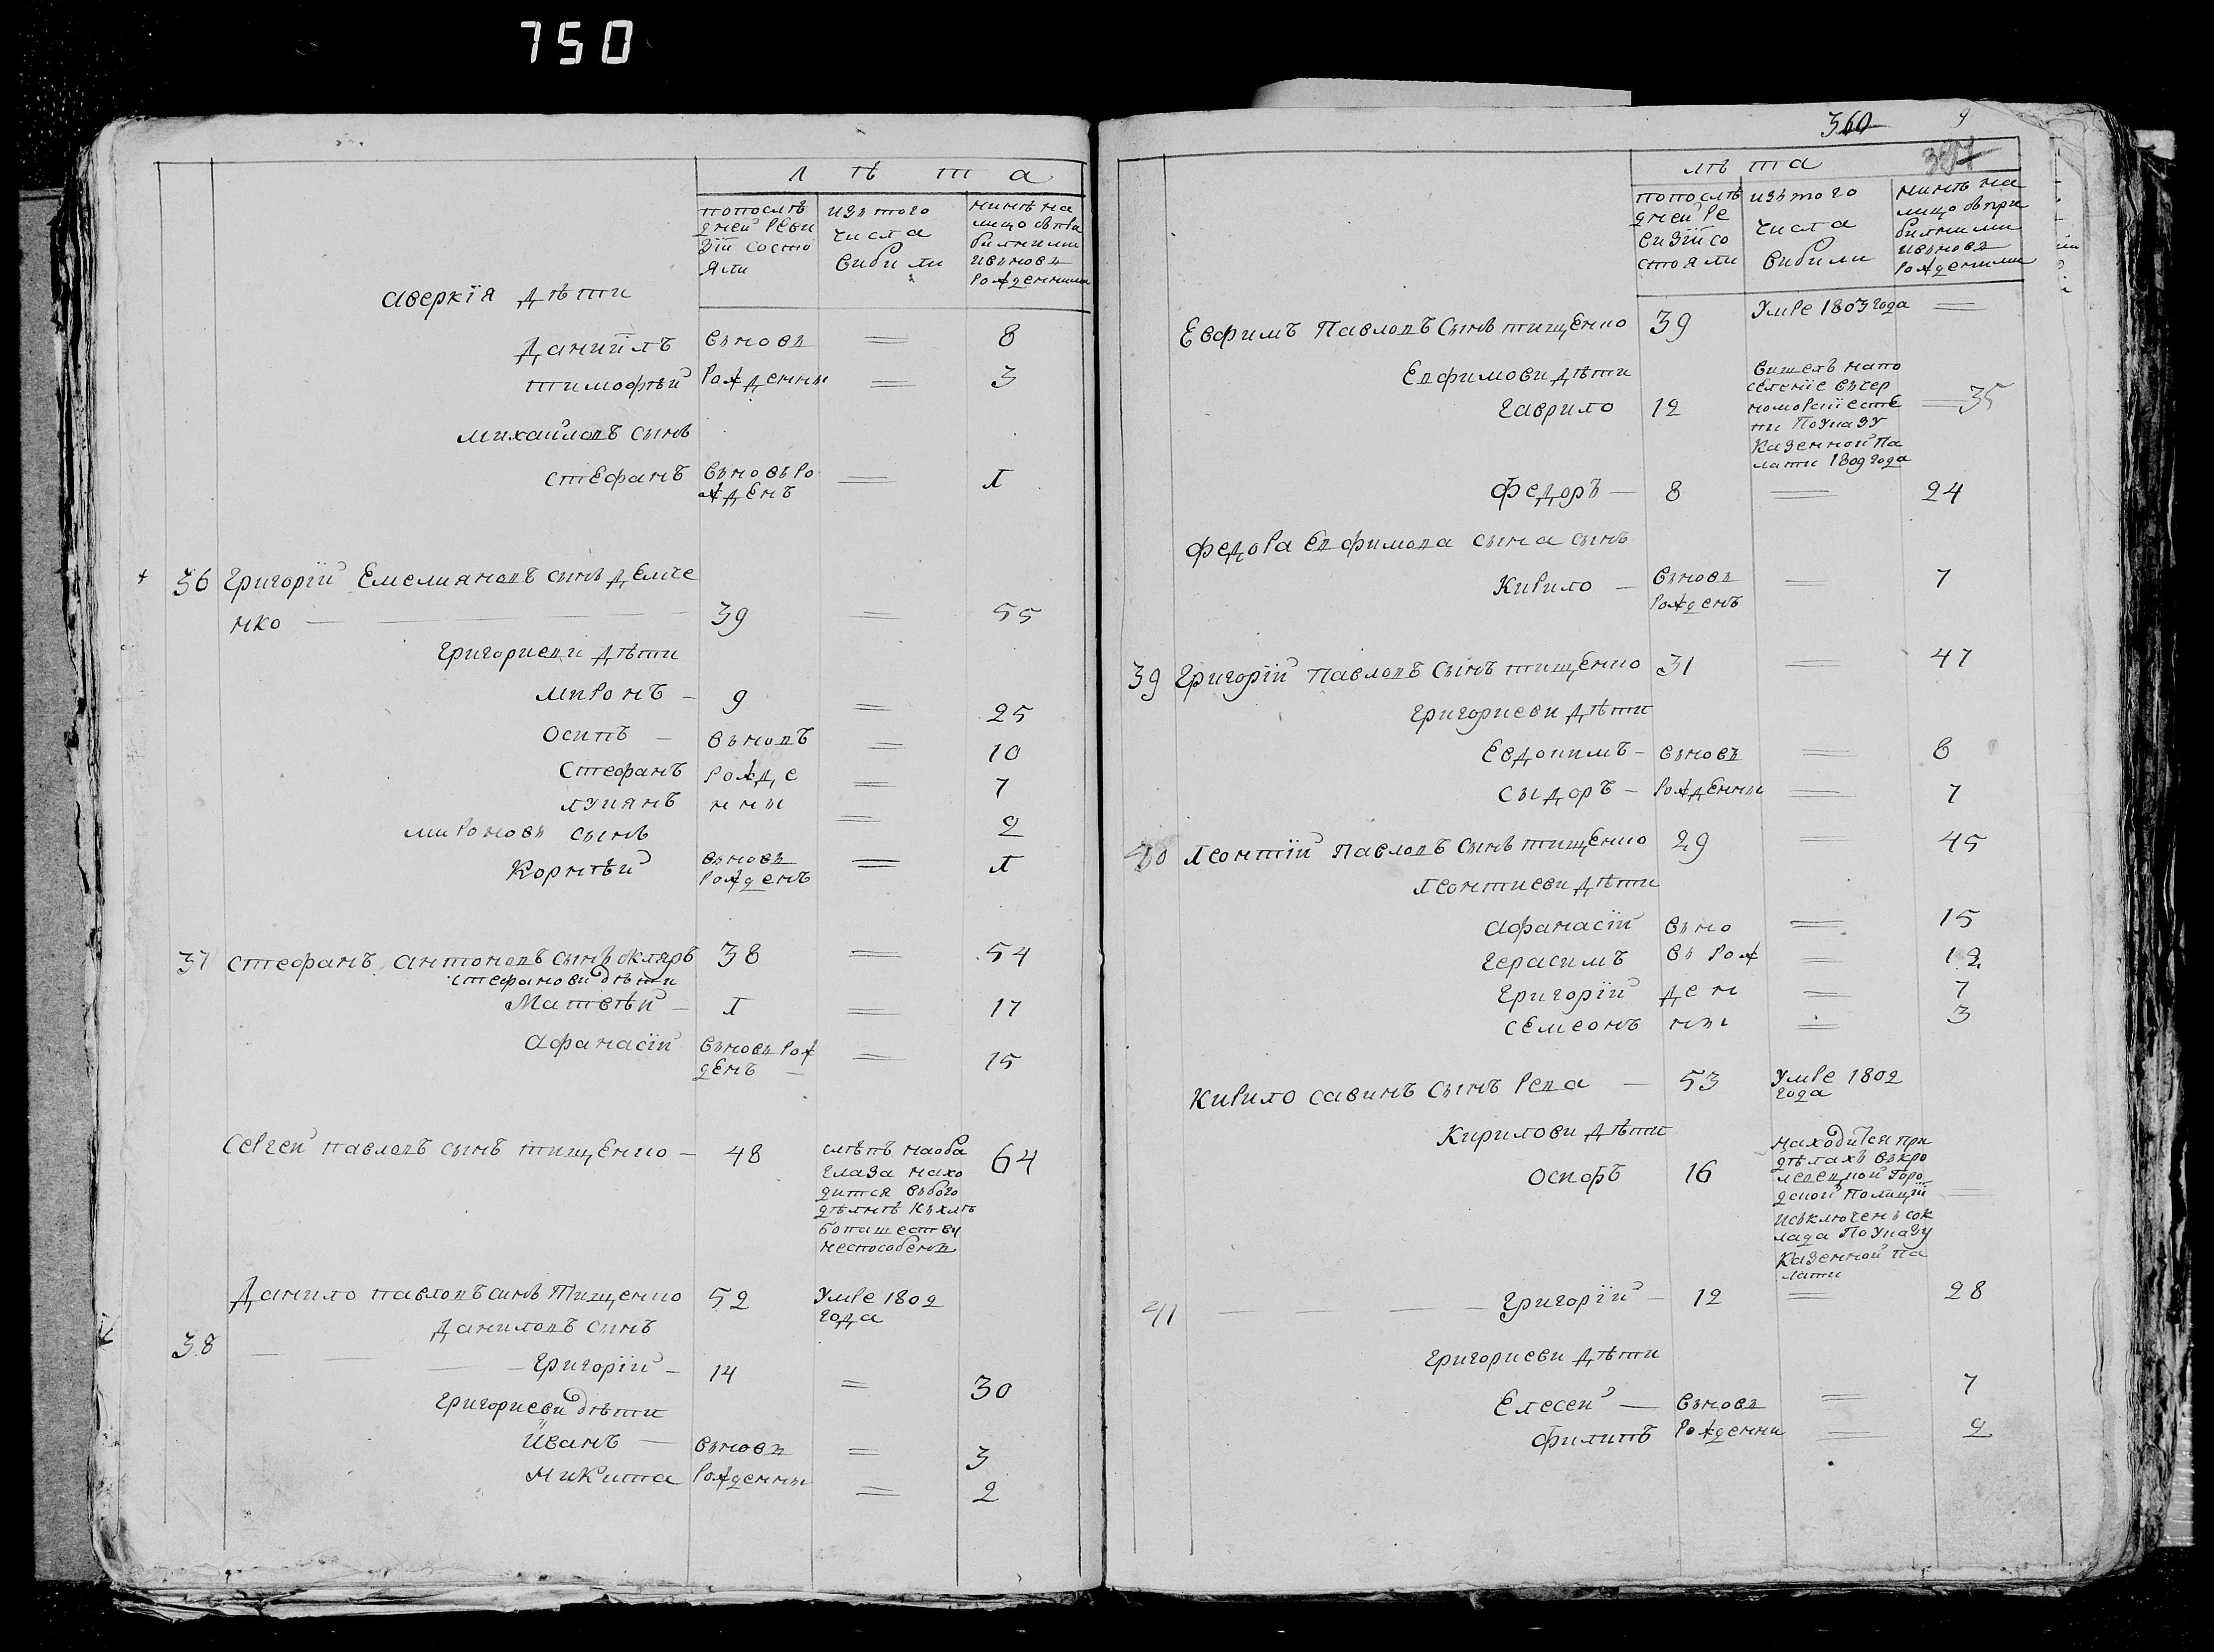 750
л ѣ т а
попослѣ дней реви зiи состо яли
изъ того числа выбыли
нинѣ на лицо съ при билими ивновь рожденними
аверкiя дѣти
Данiилъ вновь = 8
тимофѣй рожденны = 3
михайловъ сынъ
стефанъ вновь ро жденъ = 1
36 Григорiй Емелияновъ синъ демче
нко 39 = 55
григориеви дѣти
миронъ 9 = 25
осипъ вновъ = 10
стефанъ рожде = 7
лукянъ нны = 2
мироновъ сынъ
Корнѣй вновь рожденъ = 1
37 стефанъ антоновъ сынъ скляръ 38 = 54
стефанови дѣти
Матвѣй 1 = 17
афанасiй вновь рож денъ = 15
Сергей павловъ сынъ тищенко 48 слѣпъ наоба глаза нахо дится въ бого дѣлнѣ къ хлѣ бопашеству неспособенъ 64
Данило павловъ синъ Тищенко 52 умре 1802 года
даниловъ сынъ
38 Григорiй 14 = 30
григориеви дѣти
Иванъ вновь = 3
Никита рожденны = 2
360 9
лѣ та
попослѣ дней ре визiи со стояли
изъ того числа выбыли
нинѣ на лицо съ при билими ивновь рожденими
Евфимъ Павловъ сынъ тищенко 39 умре 1803 года =
Евфимови дѣти
гаврило 12 вишелъ на по селенiе въ чер номорскiе сте пи по указу казенной па лати 1809 года = 35
Федоръ 8 = 24
федора Евфимова сына сынъ
Кирило вновь рожденъ = 7
39 Григорiй павловъ сынъ тищенко 31 = 47
григориеви дѣти
Евдокимъ вновь = 8
сыдоръ рожденны = 7
40 леонтiй Павловъ сынъ тищенко 29 = 45
леонтиеви дѣти
афанасiй вно = 15
герасимъ вь рож = 12
григорiй ден = 7
семеонъ ны = 3
Кирило савинъ сынъ рева 53 умре 1802 года
Кирилови дѣти
осифъ 16 находится при дѣлахъ въ кро левецкой горо дской полицiи изключенъ сок лада по указу казенной па лати =
41 Григорiй 12 = 28
григориеви дѣти
Елесей вновь = 7
филипъ рожденни = 2